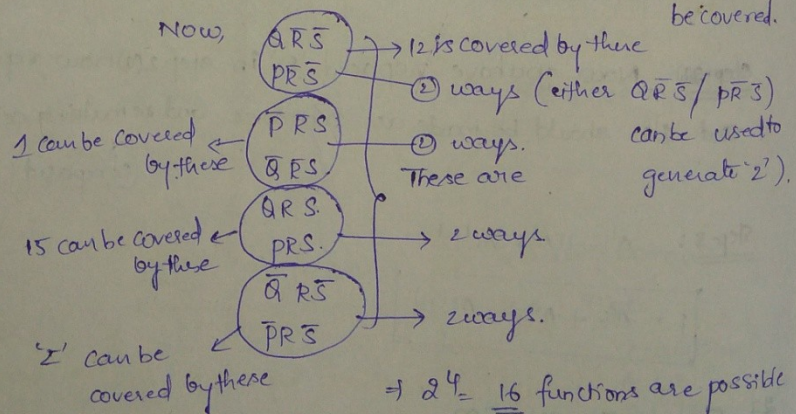 be covered.
Now,
Q R̅ S̅ → 12 is covered by these
P R̅ S̅ ② ways (either Q R̅ S̅ / P R̅ S̅)
can be used to
generate '2').
1 can be covered
by these
P̅ R̅ S
Q̅ R̅ S.
② ways.
These are
15 can be covered
by these
Q R S.
P R S.
→ 2 ways
Q̅ R S̅
P̅ R S̅
→ 2 ways.
'2' can be
covered by these
⇒ 2⁴ = 16 functions are possible